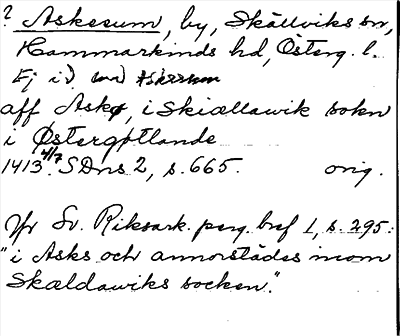 ? Askesum, by, Skällviks sn,
Hammarkinds hd, Österg. l.
Ej id. med
aff Askø, i Skiællawik sokn
i Østergøtlande
1413 4/7. SDns 2, s. 665. orig.
Jfr Sv. Riksark. perg. bref 1, s. 295:
"i Asks och annorstädes inom
Skældawiks socken."